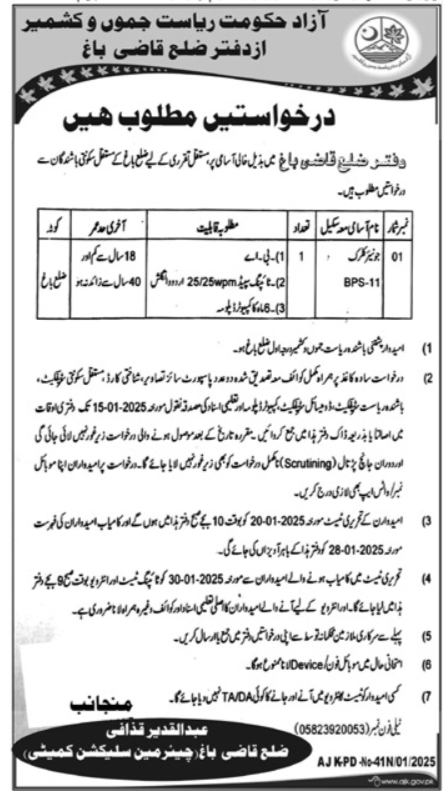 آزاد حکومت ریاست جموں و کشمیر
از دفتر ضلع قاضی باغ
درخواستیں مطلوب ھیں
دفتر ضلع قاضی باغ میں بذیل خالی آسامی پر، مستقل تقرری کے لیے ضلع باغ کے مستقل سکونتی باشندگان سے
درخواستیں مطلوب ہیں۔
نمبر شمار نام آسامی معہ سکیل تعداد مطلوبہ قابلیت آخری حد عمر کوٹہ
01 جونیئر کلرک 1 1)۔ بی۔ اے 18 سال سے کم اور
BPS-11 2)۔ ٹائپنگ سپیڈ 25/25wpm اردو و انگلش 40 سال سے زائد نہ ہو ضلع باغ
3)۔ 6 ماہ کا کمپیوٹر ڈپلومہ
1) امیدوار پشتنی باشندہ ریاست جموں و کشمیر درجہ اول ضلع باغ ہو۔
2) درخواست سادہ کاغذ پر ہمراہ مکمل کوائف معہ تصدیق شدہ دو عدد پاسپورٹ سائز تصاویر، شناختی کارڈ، مستقل سکونتی سرٹیفکیٹ،
باشندہ ریاست سرٹیفکیٹ، ڈومیسائل سرٹیفکیٹ، کمپیوٹر ڈپلومہ اور تعلیمی اسناد کی مصدقہ نقول مورخہ 15-01-2025 تک دفتری اوقات
میں اصالتاً یا بذریعہ ڈاک دفتر ہذا میں جمع کروائیں۔ مقررہ تاریخ کے بعد موصول ہونے والی درخواست زیر غور نہیں لائی جائی گی
اور دوران جانچ پڑتال (Scrutining) نامکمل درخواست کو بھی زیر غور نہیں لایا جائے گا۔ درخواست پر امیدواران اپنا موبائل
نمبر/ واٹس ایپ بھی لازمی درج کریں۔
3) امیدواران کے تحریری ٹیسٹ مورخہ 20-01-2025 کو بوقت 10 بجے صبح دفتر ہذا میں ہوں گے اور کامیاب امیدواران کی فہرست
مورخہ 28-01-2025 کو دفتر ہذا کے باہر آویزاں کی جائے گی۔
4) تحریری ٹیسٹ میں کامیاب ہونے والے امیدواران سے مورخہ 30-01-2025 کو ٹائپنگ ٹیسٹ اور انٹرویو بوقت صبح 9 بجے دفتر
ہذا میں لیا جائے گا۔ اور انٹرویو کے لیے آنے والے امیدواران کا اصلی تعلیمی اسناد اور کوائف وغیرہ ہمراہ لانا ضروری ہے۔
5) پہلے سے سرکاری ملازمین محکمانہ توسط سے اپنی درخواستیں دفتر میں جمع یا ارسال کریں۔
6) امتحانی حال میں موبائل فون/Device لانا ممنوع ہوگا۔
7) کسی امیدوار کو ٹیسٹ/انٹرویو میں آنے اور جانے کا کوئی TA/DA نہیں دیا جائے گا۔
ٹیلی فون نمبر (05823920053)
منجانب
عبدالقدیر قذافی
ضلع قاضی باغ (چیئرمین سلیکشن کمیٹی)
AJK-PD-No-41N/01/2025
www.ajk.gov.pk